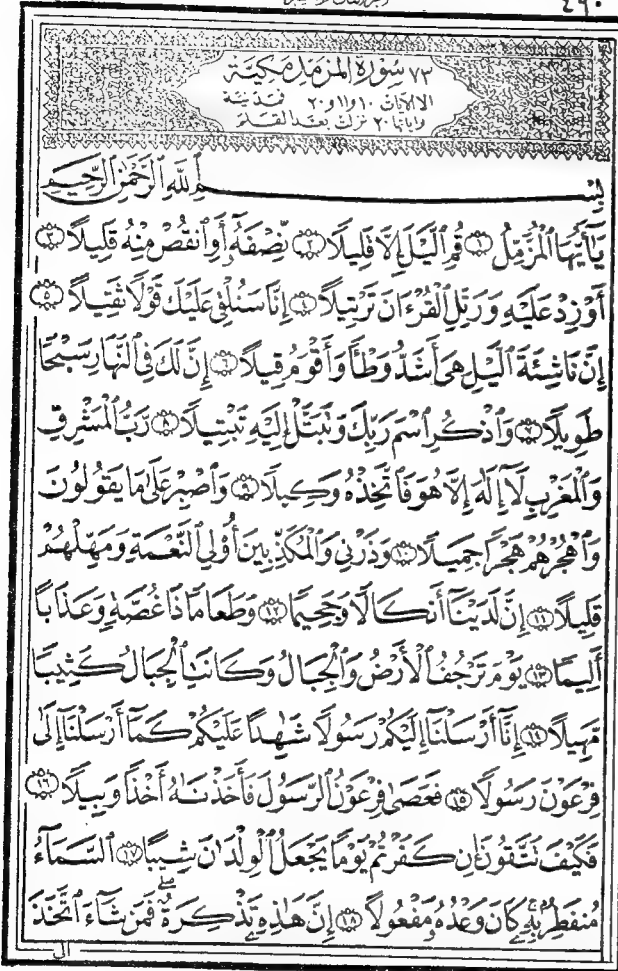 ٤٩٠
٧٣ سُورَةُ المُزَمِّل مَكيَّة
الا الآيات ١٠ و١١ و٢٠ فمدنية
وآياتها ٢٠ نزلت بعد القلم
بِسْمِ ٱللَّهِ ٱلرَّحْمَٰنِ ٱلرَّحِيمِ
يَٰٓأَيُّهَا ٱلْمُزَّمِّلُ ١ قُمِ ٱلَّيْلَ إِلَّا قَلِيلًا ٢ نِّصْفَهُۥٓ أَوِ ٱنقُصْ مِنْهُ قَلِيلًا ٣
أَوْ زِدْ عَلَيْهِ وَرَتِّلِ ٱلْقُرْءَانَ تَرْتِيلًا ٤ إِنَّا سَنُلْقِى عَلَيْكَ قَوْلًا ثَقِيلًا ٥
إِنَّ نَاشِئَةَ ٱلَّيْلِ هِىَ أَشَدُّ وَطْـًٔا وَأَقْوَمُ قِيلًا ٦ إِنَّ لَكَ فِى ٱلنَّهَارِ سَبْحًا
طَوِيلًا ٧ وَٱذْكُرِ ٱسْمَ رَبِّكَ وَتَبَتَّلْ إِلَيْهِ تَبْتِيلًا ٨ رَّبُّ ٱلْمَشْرِقِ
وَٱلْمَغْرِبِ لَآ إِلَٰهَ إِلَّا هُوَ فَٱتَّخِذْهُ وَكِيلًا ٩ وَٱصْبِرْ عَلَىٰ مَا يَقُولُونَ
وَٱهْجُرْهُمْ هَجْرًا جَمِيلًا ١٠ وَذَرْنِى وَٱلْمُكَذِّبِينَ أُو۟لِى ٱلنَّعْمَةِ وَمَهِّلْهُمْ
قَلِيلًا ١١ إِنَّ لَدَيْنَآ أَنكَالًا وَجَحِيمًا ١٢ وَطَعَامًا ذَا غُصَّةٍ وَعَذَابًا
أَلِيمًا ١٣ يَوْمَ تَرْجُفُ ٱلْأَرْضُ وَٱلْجِبَالُ وَكَانَتِ ٱلْجِبَالُ كَثِيبًا
مَّهِيلًا ١٤ إِنَّآ أَرْسَلْنَآ إِلَيْكُمْ رَسُولًا شَٰهِدًا عَلَيْكُمْ كَمَآ أَرْسَلْنَآ إِلَىٰ
فِرْعَوْنَ رَسُولًا ١٥ فَعَصَىٰ فِرْعَوْنُ ٱلرَّسُولَ فَأَخَذْنَٰهُ أَخْذًا وَبِيلًا ١٦
فَكَيْفَ تَتَّقُونَ إِن كَفَرْتُمْ يَوْمًا يَجْعَلُ ٱلْوِلْدَٰنَ شِيبًا ١٧ ٱلسَّمَآءُ
مُنفَطِرٌۢ بِهِۦ كَانَ وَعْدُهُۥ مَفْعُولًا ١٨ إِنَّ هَٰذِهِۦ تَذْكِرَةٌ فَمَن شَآءَ ٱتَّخَذَ
إلى